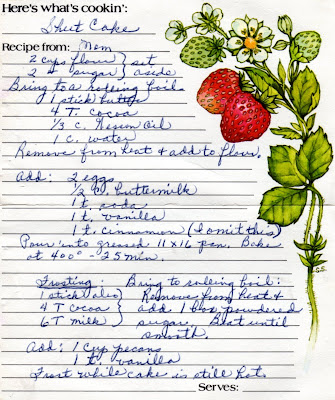 Here's what's cookin':
Sheet Cake
Recipe from: Mom
2 cups flour } set
2 c sugar } aside
Bring to a rolling boil.
1 stick butter
4 T. cocoa
1/3 c. Wesson Oil
1 c. water
Remove from heat & add to flour.
Add: 2 eggs
1/2 c. buttermilk
1 t. soda
1 t. vanilla
1 t. cinnamon (I omit this)
Pour into greased 11x16 pan. Bake
at 400° - 25 min.
Frosting: Bring to rolling boil:
1 stick oleo } Remove from heat &
4 T cocoa } add 1 box powdered
6 T milk } sugar. Beat until
smooth.
Add: 1 cup pecans
1 t. vanilla
Frost while cake is still hot.
Serves: